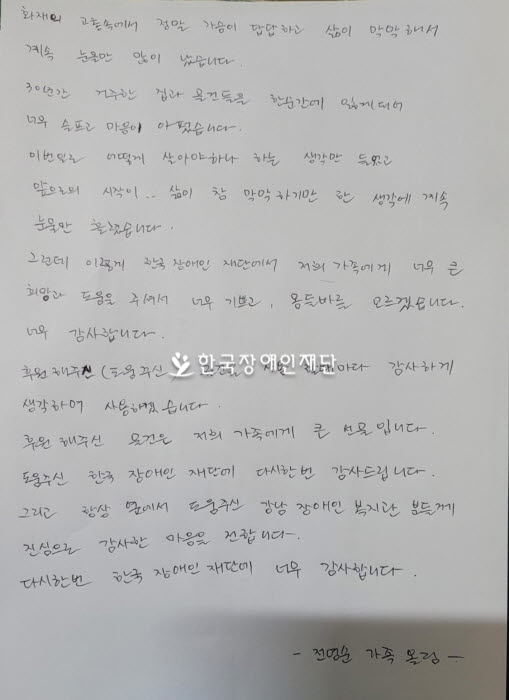 화재의 고통속에서 정말 가슴이 답답하고 삶이 막막해서
계속 눈물만 많이 났습니다.
30년간 거주한 집과 물건들을 한순간에 잃게되어
너무 슬프고 마음이 아팠습니다.
이번일로 어떻게 살아야하나 하는 생각만 들었고
앞으로의 시작이.. 삶이 참 막막하기만 한 생각에 계속
눈물만 흘렸습니다.
그런데 이렇게 한국 장애인 재단에서 저희 가족에게 너무 큰
희망과 도움을 주셔서 너무 기쁘고, 몸둘바를 모르겠습니다.
너무 감사합니다.
후원해주신 (도움주신) 때마다 감사하게
한국장애인재단
생각하며 사용하겠습니다.
후원 해주신 물건은 저희 가족에게 큰 선물입니다.
도움주신 한국 장애인 재단에 다시한번 감사드립니다.
그리고 항상 옆에서 도움주신 강남 장애인 복지관 분들께
진심으로 감사한 마음을 전합니다.
다시한번 한국 장애인 재단에 너무 감사합니다.
- 전영순 가족 올림 -